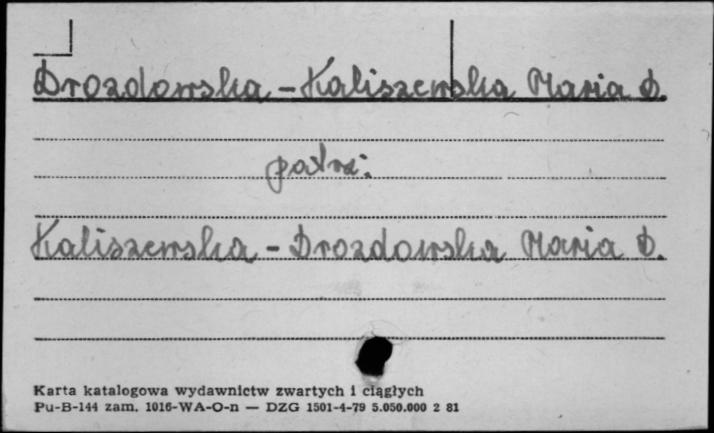 Drozdowska - Kaliszewska Maria D.
patrz:
Kaliszewska - Drozdowska Maria D.
Karta katalogowa wydawnictw zwartych i ciągłych
Pu-B-144 zam. 1016-WA-O-n — DZG 1501-4-79 5.050.000 2 81